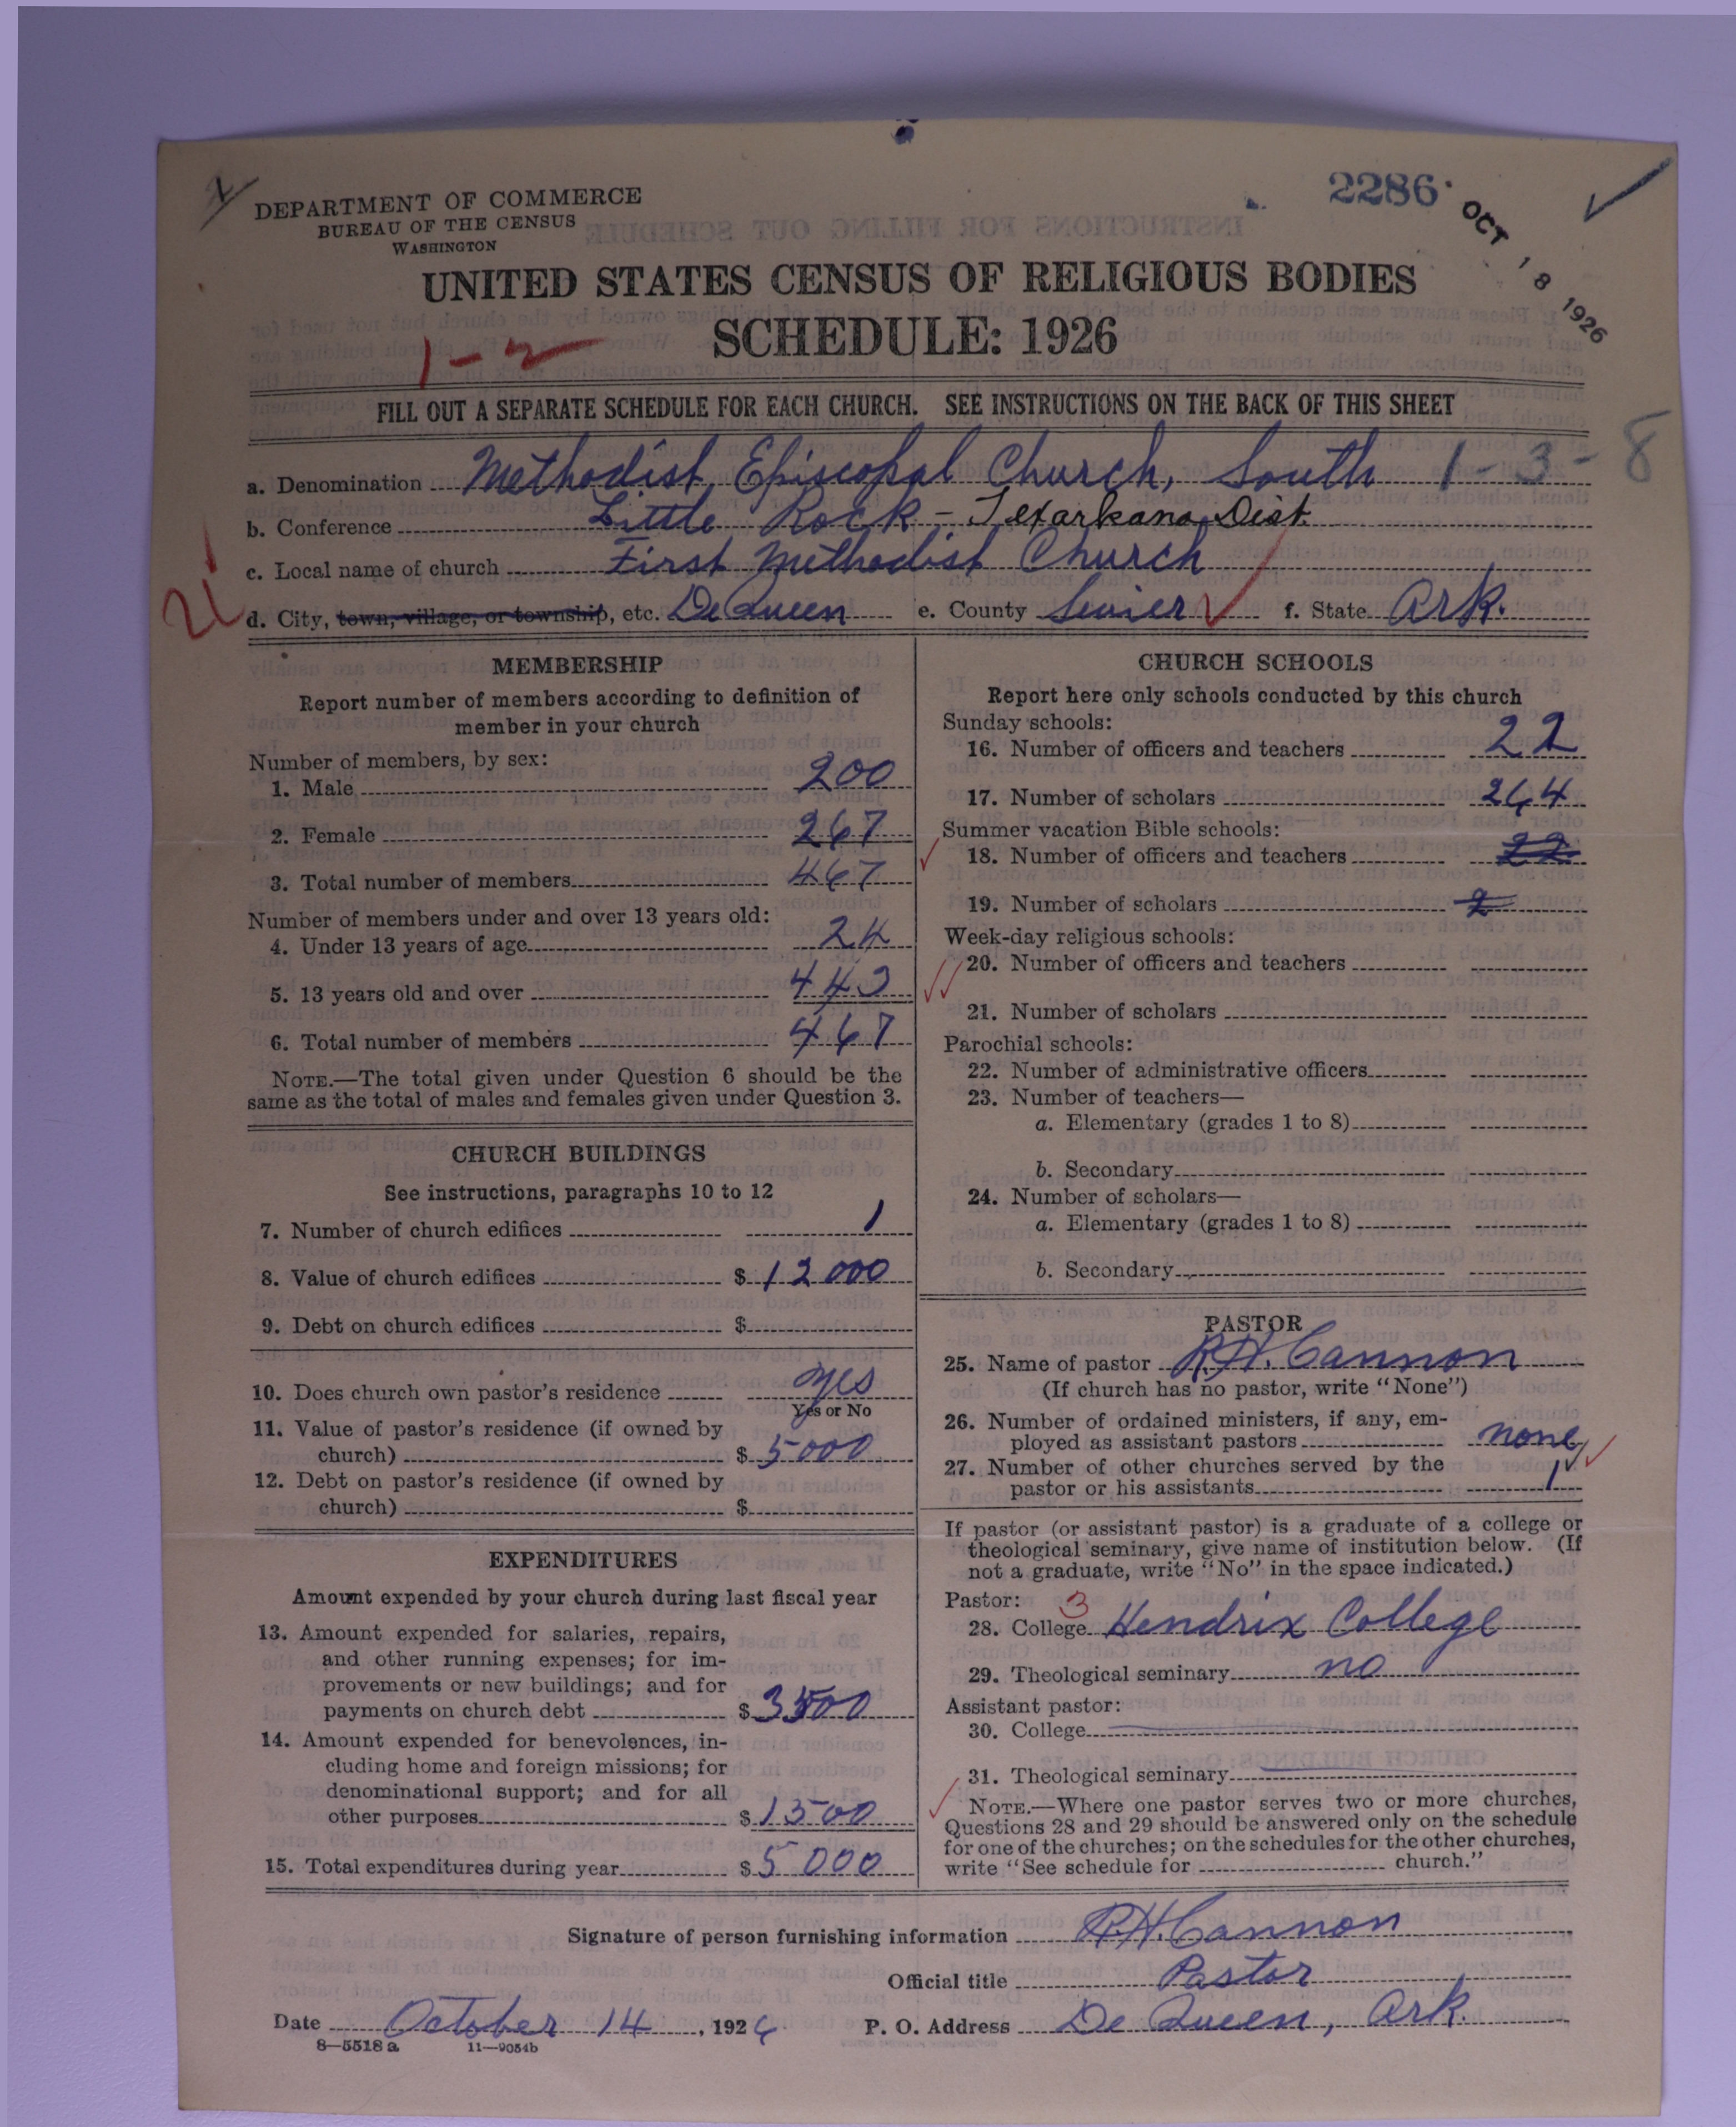 DEPARTMENT OF COMMERCE
BUREAU OF THE CENSUS
WASHINGTON
2286
OCT 18 1926
UNITED STATES CENSUS OF RELIGIOUS BODIES
SCHEDULE: 1926
1-2
FILL OUT A SEPARATE SCHEDULE FOR EACH CHURCH. SEE INSTRUCTIONS ON THE BACK OF THIS SHEET
a. Denomination Methodist Episcopal Church, South 1-3-8
b. Conference Little Rock - Texarkana Dist.
c. Local name of church First Methodist Church
d. City, town, village, or township, etc. De Queen e. County Sevier f. State Ark.
MEMBERSHIP
Report number of members according to definition of
member in your church
Number of members, by sex:
1. Male 200
2. Female 267
3. Total number of members 467
Number of members under and over 13 years old:
4. Under 13 years of age 24
5. 13 years old and over 443
6. Total number of members 467
NOTE.—The total given under Question 6 should be the
same as the total of males and females given under Question 3.
CHURCH BUILDINGS
See instructions, paragraphs 10 to 12
7. Number of church edifices 1
8. Value of church edifices $ 12000
9. Debt on church edifices $
10. Does church own pastor's residence yes
Yes or No
11. Value of pastor's residence (if owned by
church) $ 5000
12. Debt on pastor's residence (if owned by
church) $
EXPENDITURES
Amount expended by your church during last fiscal year
13. Amount expended for salaries, repairs,
and other running expenses; for im-
provements or new buildings; and for
payments on church debt $ 3500
14. Amount expended for benevolences, in-
cluding home and foreign missions; for
denominational support; and for all
other purposes $ 1500
15. Total expenditures during year $ 5000
CHURCH SCHOOLS
Report here only schools conducted by this church
Sunday schools:
16. Number of officers and teachers 22
17. Number of scholars 264
Summer vacation Bible schools:
18. Number of officers and teachers 22
19. Number of scholars 2
Week-day religious schools:
20. Number of officers and teachers
21. Number of scholars
Parochial schools:
22. Number of administrative officers
23. Number of teachers—
a. Elementary (grades 1 to 8)
b. Secondary
24. Number of scholars—
a. Elementary (grades 1 to 8)
b. Secondary
PASTOR
25. Name of pastor R.H. Cannon
(If church has no pastor, write "None")
26. Number of ordained ministers, if any, em-
ployed as assistant pastors none
27. Number of other churches served by the
pastor or his assistants 1
If pastor (or assistant pastor) is a graduate of a college or
theological seminary, give name of institution below. (If
not a graduate, write "No" in the space indicated.)
Pastor: 3
28. College Hendrix College
29. Theological seminary no
Assistant pastor:
30. College
31. Theological seminary
NOTE.—Where one pastor serves two or more churches,
Questions 28 and 29 should be answered only on the schedule
for one of the churches; on the schedules for the other churches,
write "See schedule for church."
Signature of person furnishing information R.H. Cannon
Official title Pastor
Date October 14, 1926 P. O. Address De Queen, Ark.
8—5518 a 11—9054b